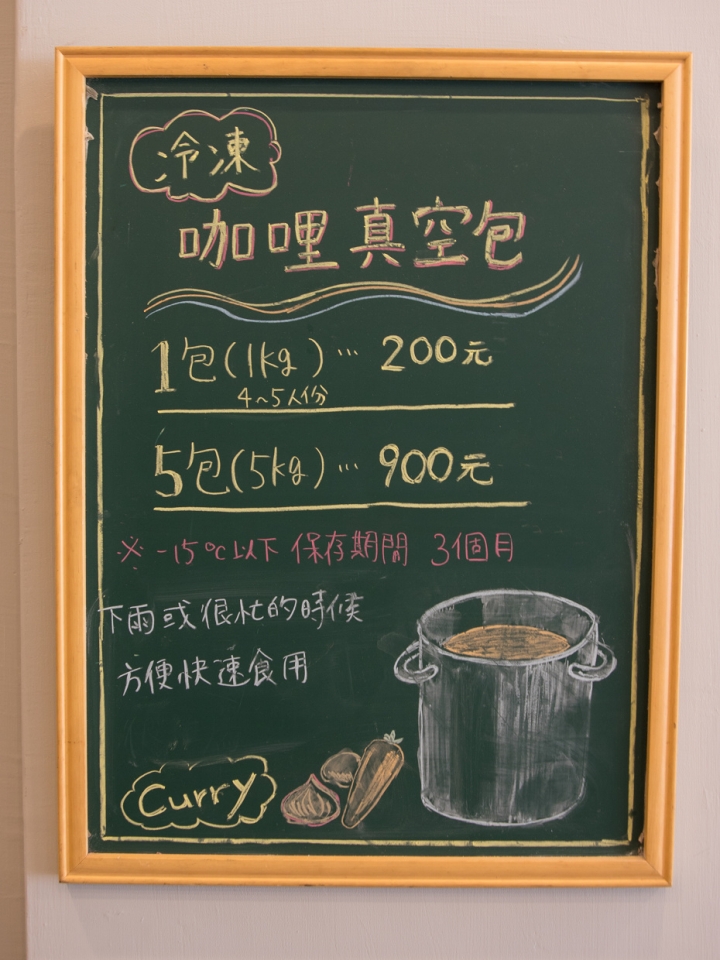 冷凍
咖哩真空包
1包(1kg)… 200元
4~5人份
5包(5kg)… 900元
※ -15℃以下 保存期間 3個月
下雨或很忙的時候
方便快速食用
Curry